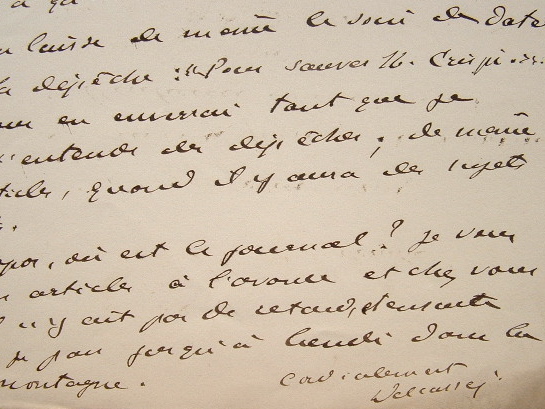 laisse de même le soin de dater
la dépêche : "Pour sauver M. Crispi".
en enverrai tant que je
entends des dépêches ; de même
articles, quand il y aura des sujets
où est le journal ? Je vous
articles à l'avance et chez vous
n'y ait pas de retard, et ensuite
je pars jusqu'à lundi dans la
montagne.
Cordialement
Delcassé